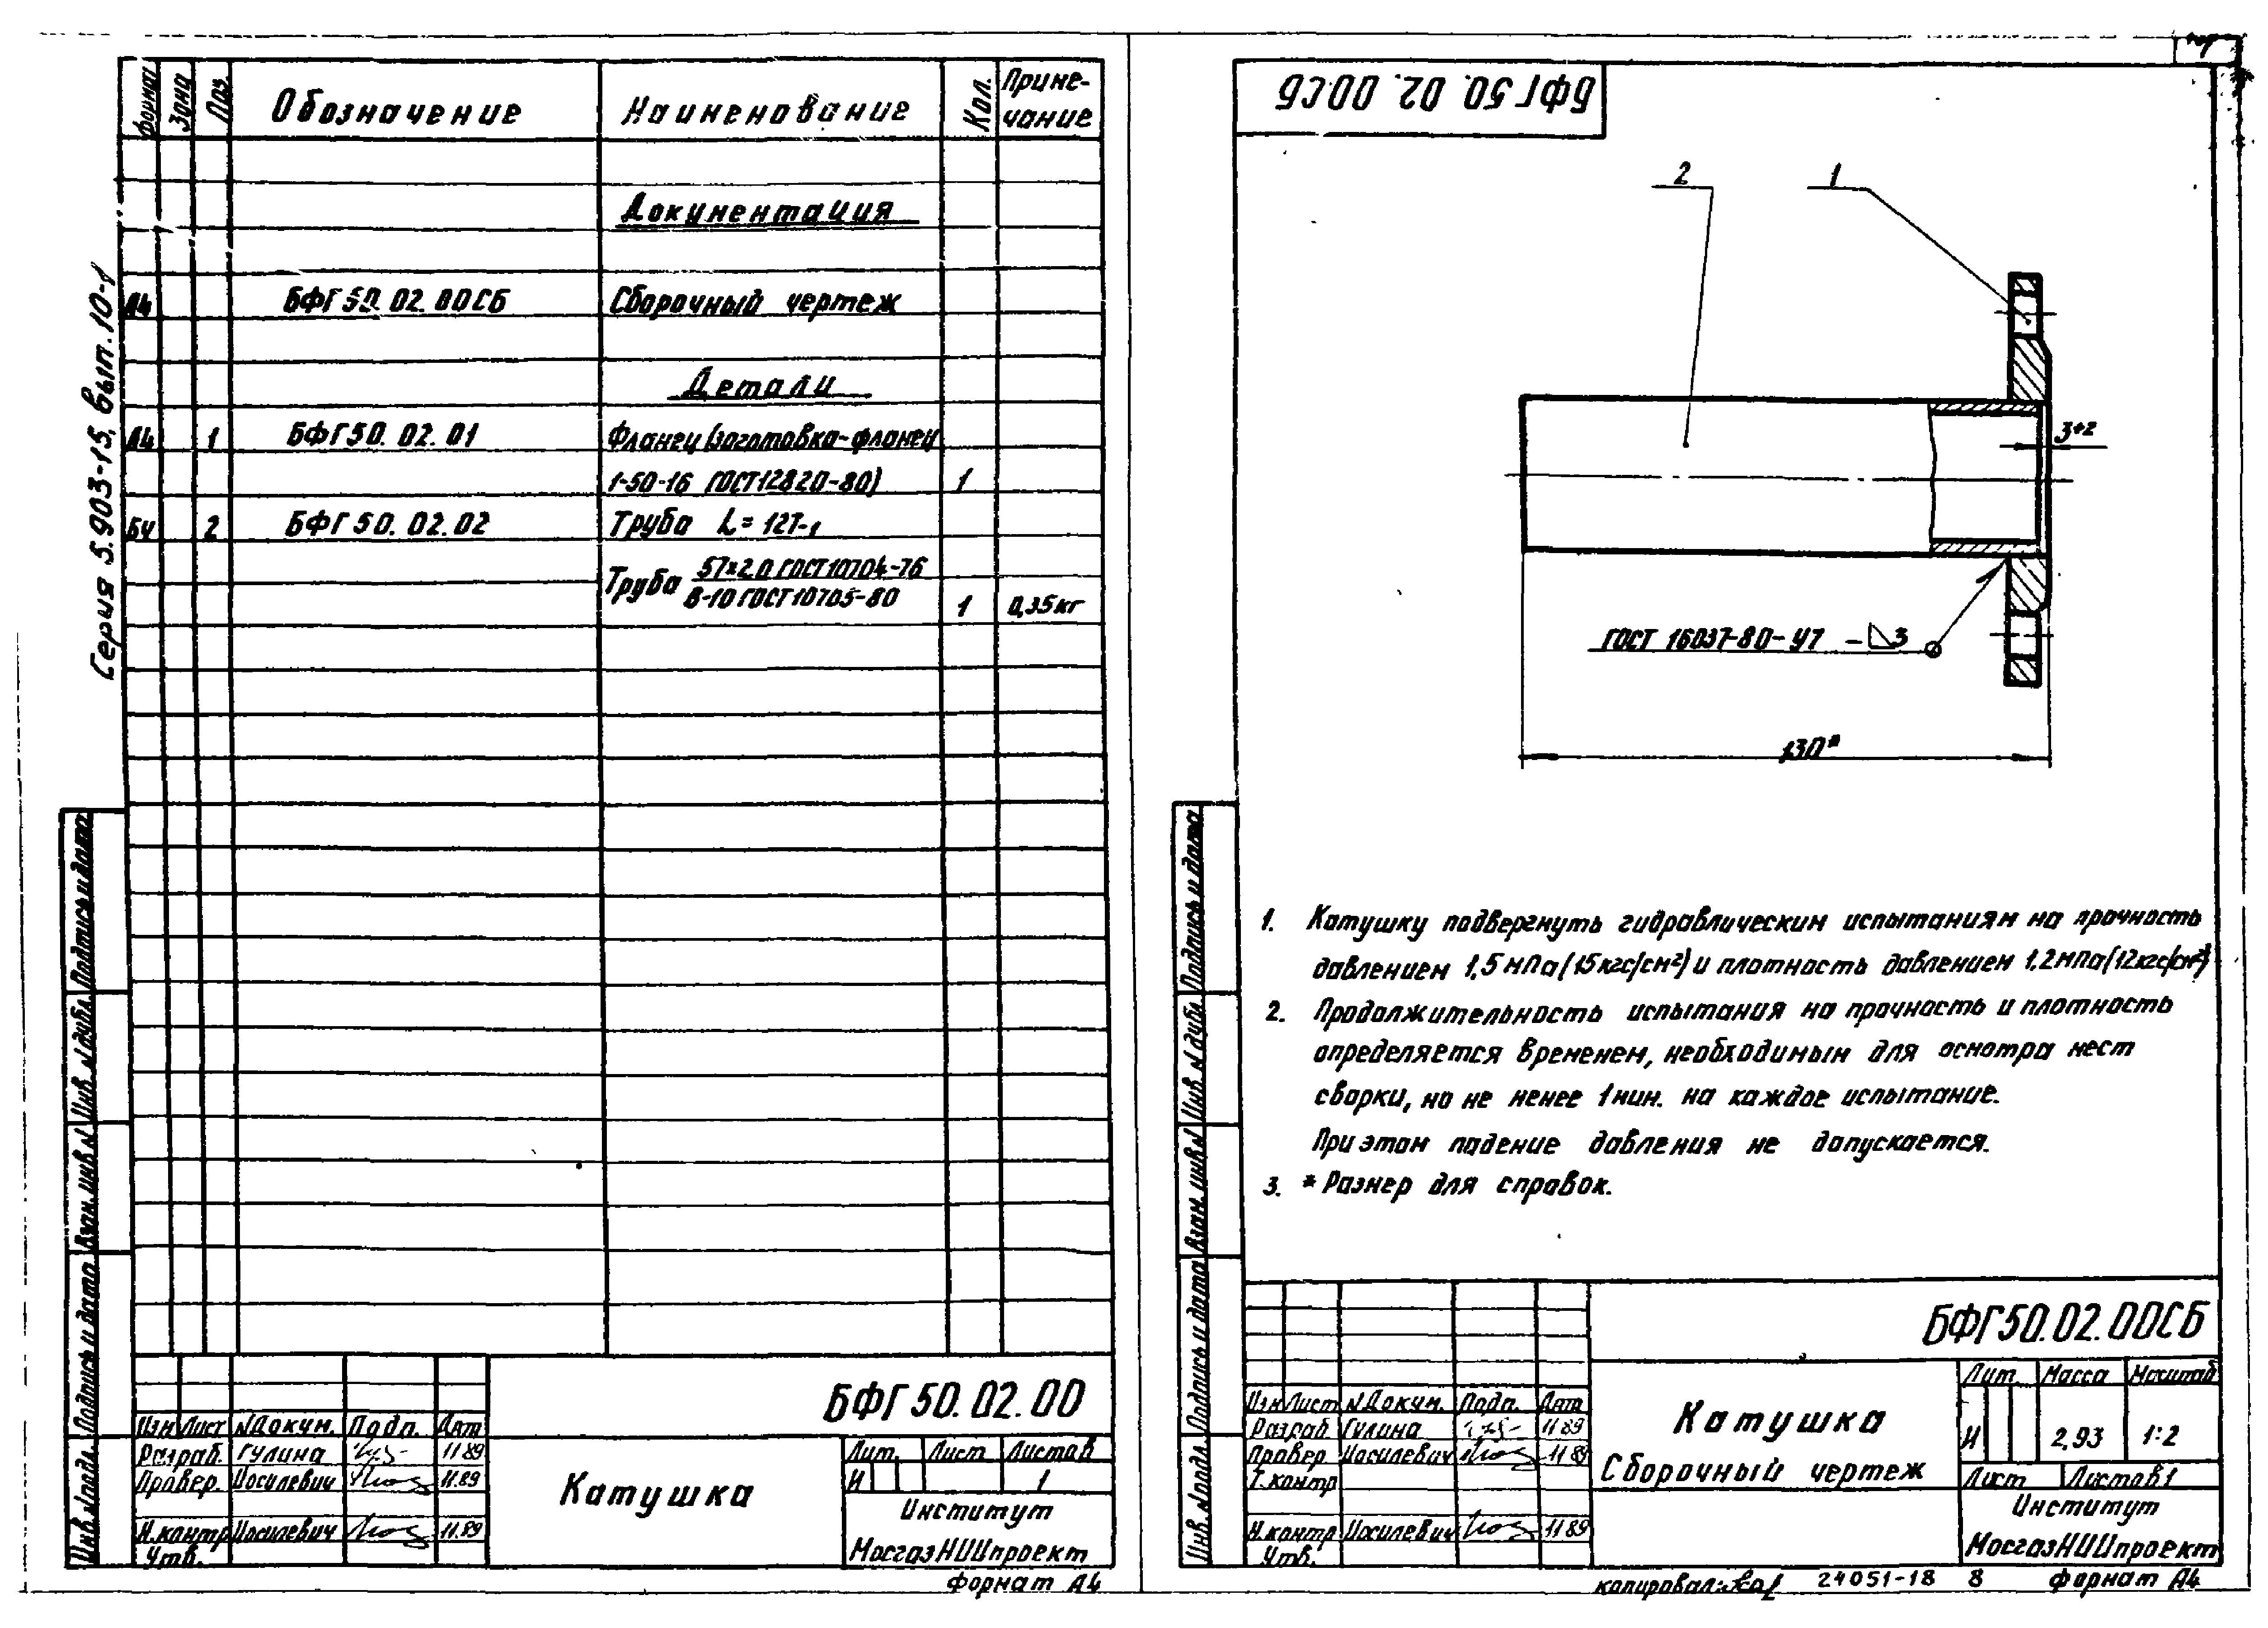 Серия 5.903-15, вып. 10-1
Формат Зона Поз. Обозначение Наименование Кол. Приме-
чание
Документация
А4 БФГ 50. 02. 00СБ Сборочный чертеж
Детали
А4 1 БФГ 50. 02. 01 Фланец (заготовка-фланец
1-50-16 ГОСТ 12820-80) 1
БЧ 2 БФГ 50. 02. 02 Труба L = 127-1
Труба 57×2,0 ГОСТ 10704-76
В-10 ГОСТ 10705-80 1 0,35кг
Подпись и дата
Инв. N дубл.
Взам. инв. N
Подпись и дата
Инв. N подл.
БФГ 50. 02. 00
Изм Лист N Докум. Подп. Дата
Разраб. Гулина 11 89
Провер. Иосилевич 11.89
Н.контр Иосилевич 11.89
Утв.
Катушка
Лит. Лист Листов
И 1
Институт
МосгазНИИпроект
Формат А4
БФГ 50. 02. 00СБ
2 1
3+2
ГОСТ 16037-80-У7 - ◺3
130*
1. Катушку подвергнуть гидравлическим испытаниям на прочность
давлением 1,5 МПа (15 кгс/см²) и плотность давлением 1,2 МПа (12 кгс/см²)
2. Продолжительность испытания на прочность и плотность
определяется временем, необходимым для осмотра мест
сварки, но не менее 1 мин. на каждое испытание.
При этом падение давления не допускается.
3. * Размер для справок.
Подпись и дата
Инв. N дубл.
Взам. инв. N
Подпись и дата
Инв. N подл.
БФГ 50. 02. 00СБ
Изм Лист N Докум. Подп. Дата
Разраб. Гулина 11 89
Провер Иосилевич 11 89
Т.контр
Н.контр Иосилевич 11 89
Утв.
Катушка
Сборочный чертеж
Лит. Масса Масштаб
И 2,93 1:2
Лист Листов 1
Институт
МосгазНИИпроект
копировал: 24051-18 8 формат А4